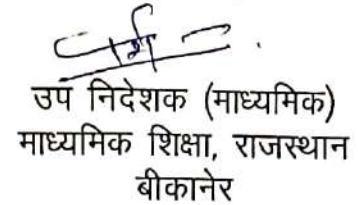 उप निदेशक (माध्यमिक)
माध्यमिक शिक्षा, राजस्थान
बीकानेर